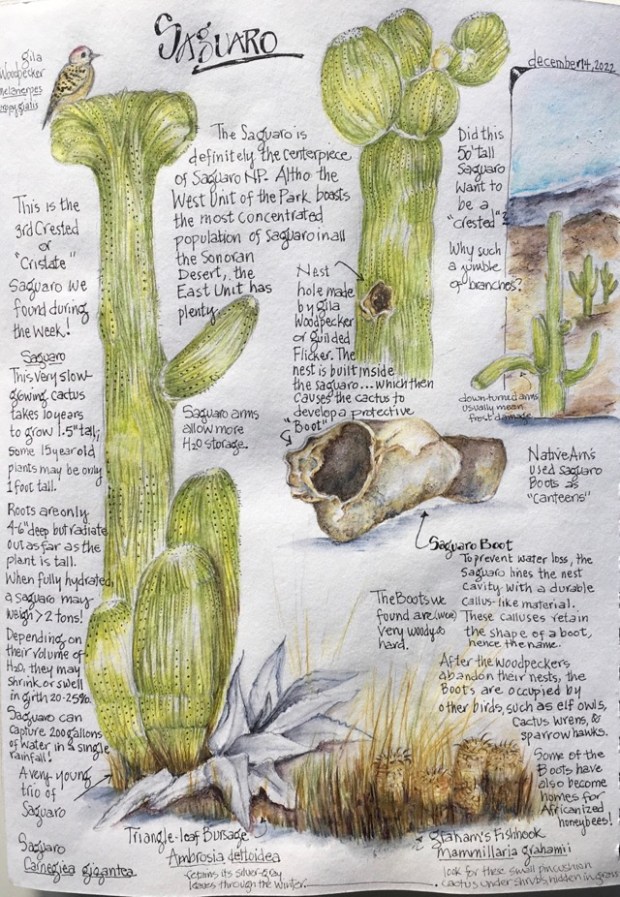 Saguaro
Gila
Woodpecker
december 14, 2022
The Saguaro is
definitely the centerpiece
of Saguaro NP. Altho the
West Unit of the Park boasts
the most concentrated
population of Saguaro in all
the Sonoran
Desert, the
East Unit has
plenty.
This is the
3rd Crested
or
"Cristate"
Saguaro we
found during
the week!
Saguaro
This very slow-
growing cactus
takes 10 years
to grow 1.5" tall;
some 15 year old
plants may be only
1 foot tall.
Roots are only
4-6" deep but radiate
out as far as the
plant is tall.
When fully hydrated,
a saguaro may
weigh >2 tons!
Depending on
their volume of
H2O, they may
shrink or swell
in girth 20-25%.
Saguaro can
capture 200 gallons
of water in a single
rainfall!
A very young
trio of
Saguaro
Saguaro
Carnegiea gigantea
Saguaro arms
allow more
H2O storage.
Nest
hole made
by Gila
Woodpecker
or Guilded
Flicker. The
nest is built inside
the saguaro... which then
causes the cactus to
develop a protective
"Boot"
Did this
50' tall
Saguaro
want to
be a
"crested"?
Why such
a jumble
of branches?
down-turned arms
usually mean
frost damage
Native Am's
used Saguaro
Boots as
"canteens"
Saguaro Boot
To prevent water loss, the
Saguaro lines the nest
cavity with a durable
callus-like material.
These calluses retain
the shape of a boot,
hence the name.
The Boots we
found are (were)
very woody &
hard.
After the woodpeckers
abandon their nests, the
Boots are occupied by
other birds, such as elf owls,
cactus wrens, &
sparrow hawks.
Some of the
Boots have
also become
homes for
Africanized
honeybees!
Triangle-leaf Bursage
Ambrosia deltoidea
retains its silver-gray
leaves through the winter
Graham's Fishhook
Mammillaria grahamii
look for these small pincushion
cactus under shrubs, hidden in grass